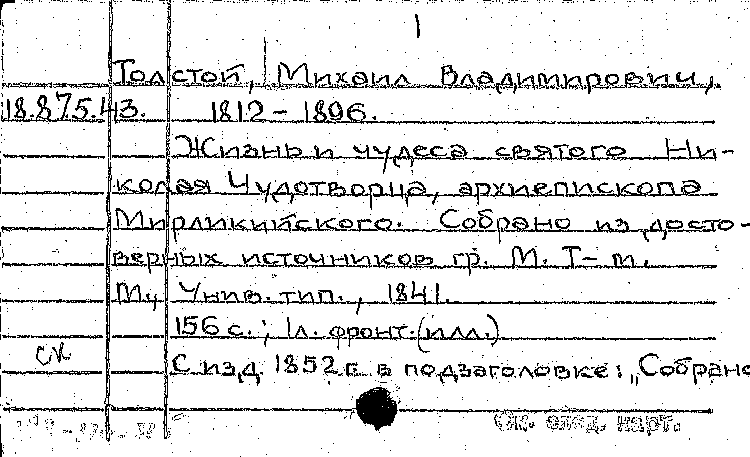 1
Толстой, Михаил Владимирович,
18.875.43. 1812-1896.
Жизнь и чудеса святого Ни-
колая Чудотворца, архиепископа
Мирликийского. Собрано из досто-
верных источников гр. М. Т-м.
М., Унив. тип., 1841.
156 с.; 1л. фронт.(илл.)
ск С изд. 1852 г. в подзаголовке: „Собрано
См. след. карт.